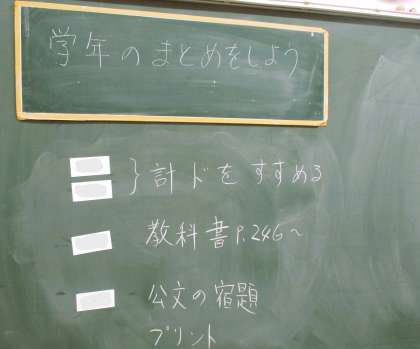 学年のまとめをしよう
}計ドをすすめる
教科書P.246~
公文の宿題
プリント